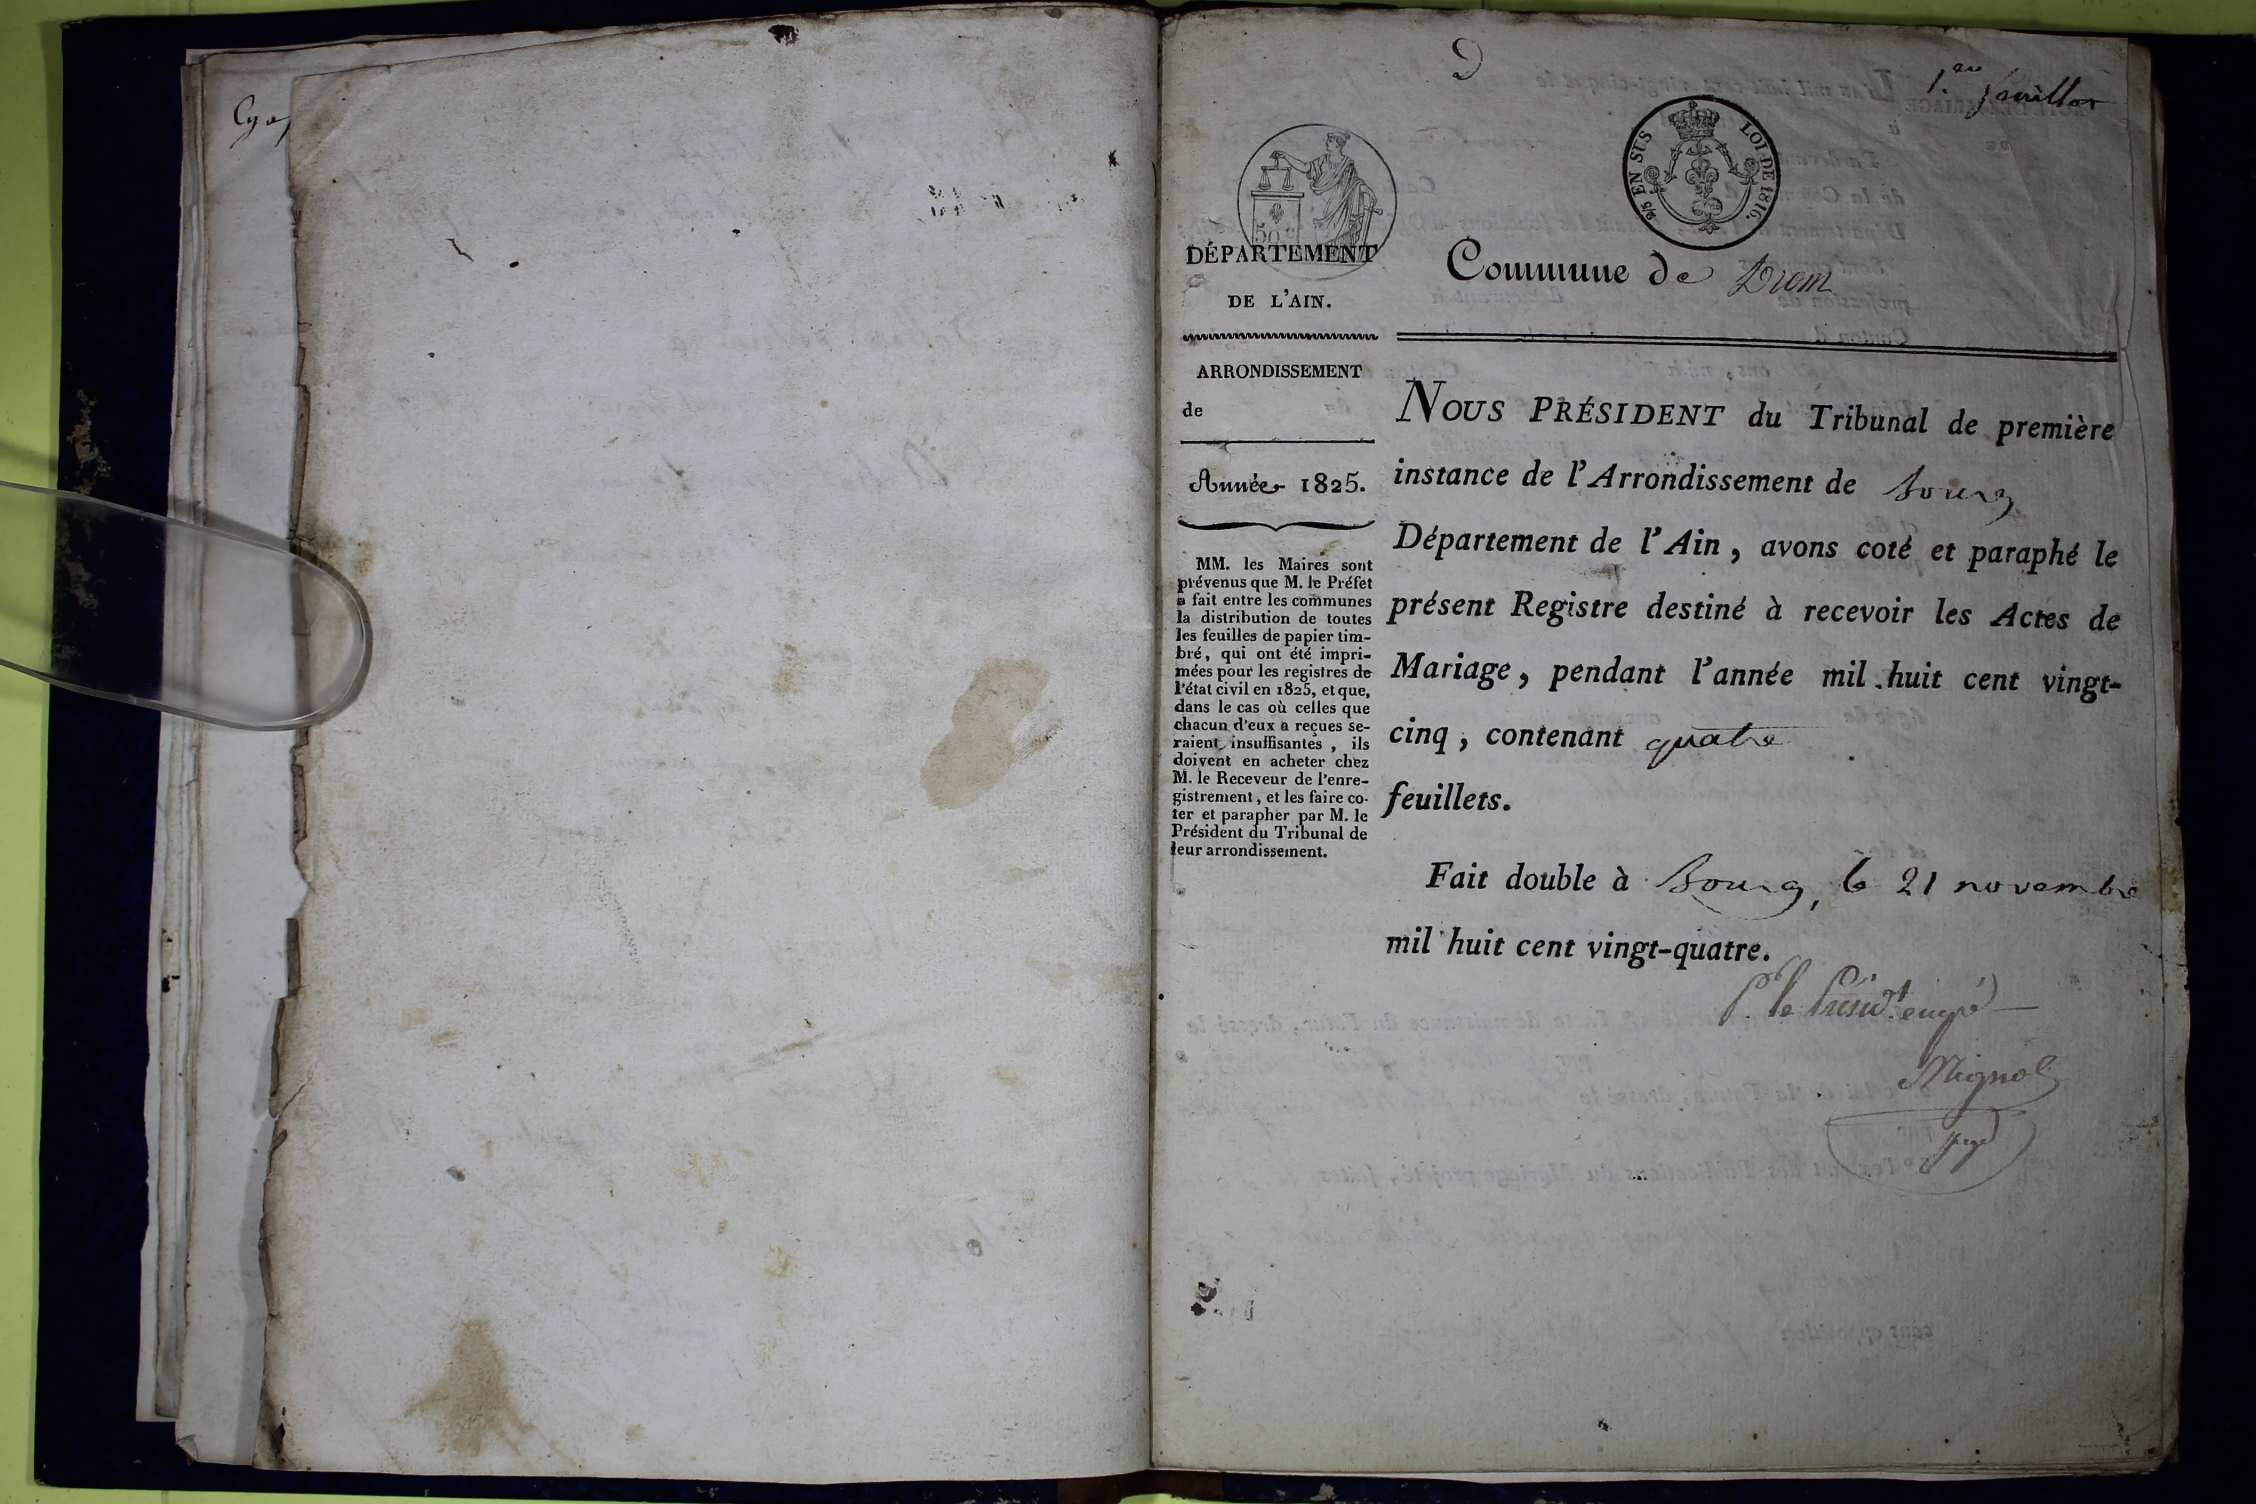 1.er feuillet
2/5 EN SUS
LOI DE 1816.
50c
DÉPARTEMENT
DE L'AIN.
ARRONDISSEMENT
de
Année 1825.
MM. les Maires sont
prévenus que M. le Préfet
a fait entre les communes
la distribution de toutes
les feuilles de papier tim-
bré, qui ont été impri-
mées pour les registres de
l'état civil en 1825, et que,
dans le cas où celles que
chacun d'eux a reçues se-
raient insuffisantes, ils
doivent en acheter chez
M. le Receveur de l'enre-
gistrement, et les faire co-
ter et parapher par M. le
Président du Tribunal de
leur arrondissement.
Commune de Drom
NOUS PRÉSIDENT du Tribunal de première
instance de l'Arrondissement de Bourg
Département de l'Ain, avons coté et paraphé le
présent Registre destiné à recevoir les Actes de
Mariage, pendant l'année mil huit cent vingt-
cinq, contenant quatre
feuillets.
Fait double à Bourg, le 21 novembre
mil huit cent vingt-quatre.
P. le Présidt empé
Mignot
juge